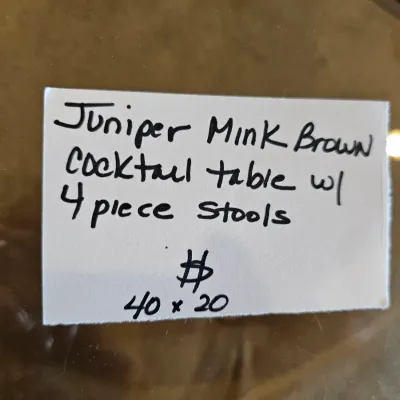 Juniper Mink Brown
cocktail table w/
4 piece stools
$
40 x 20